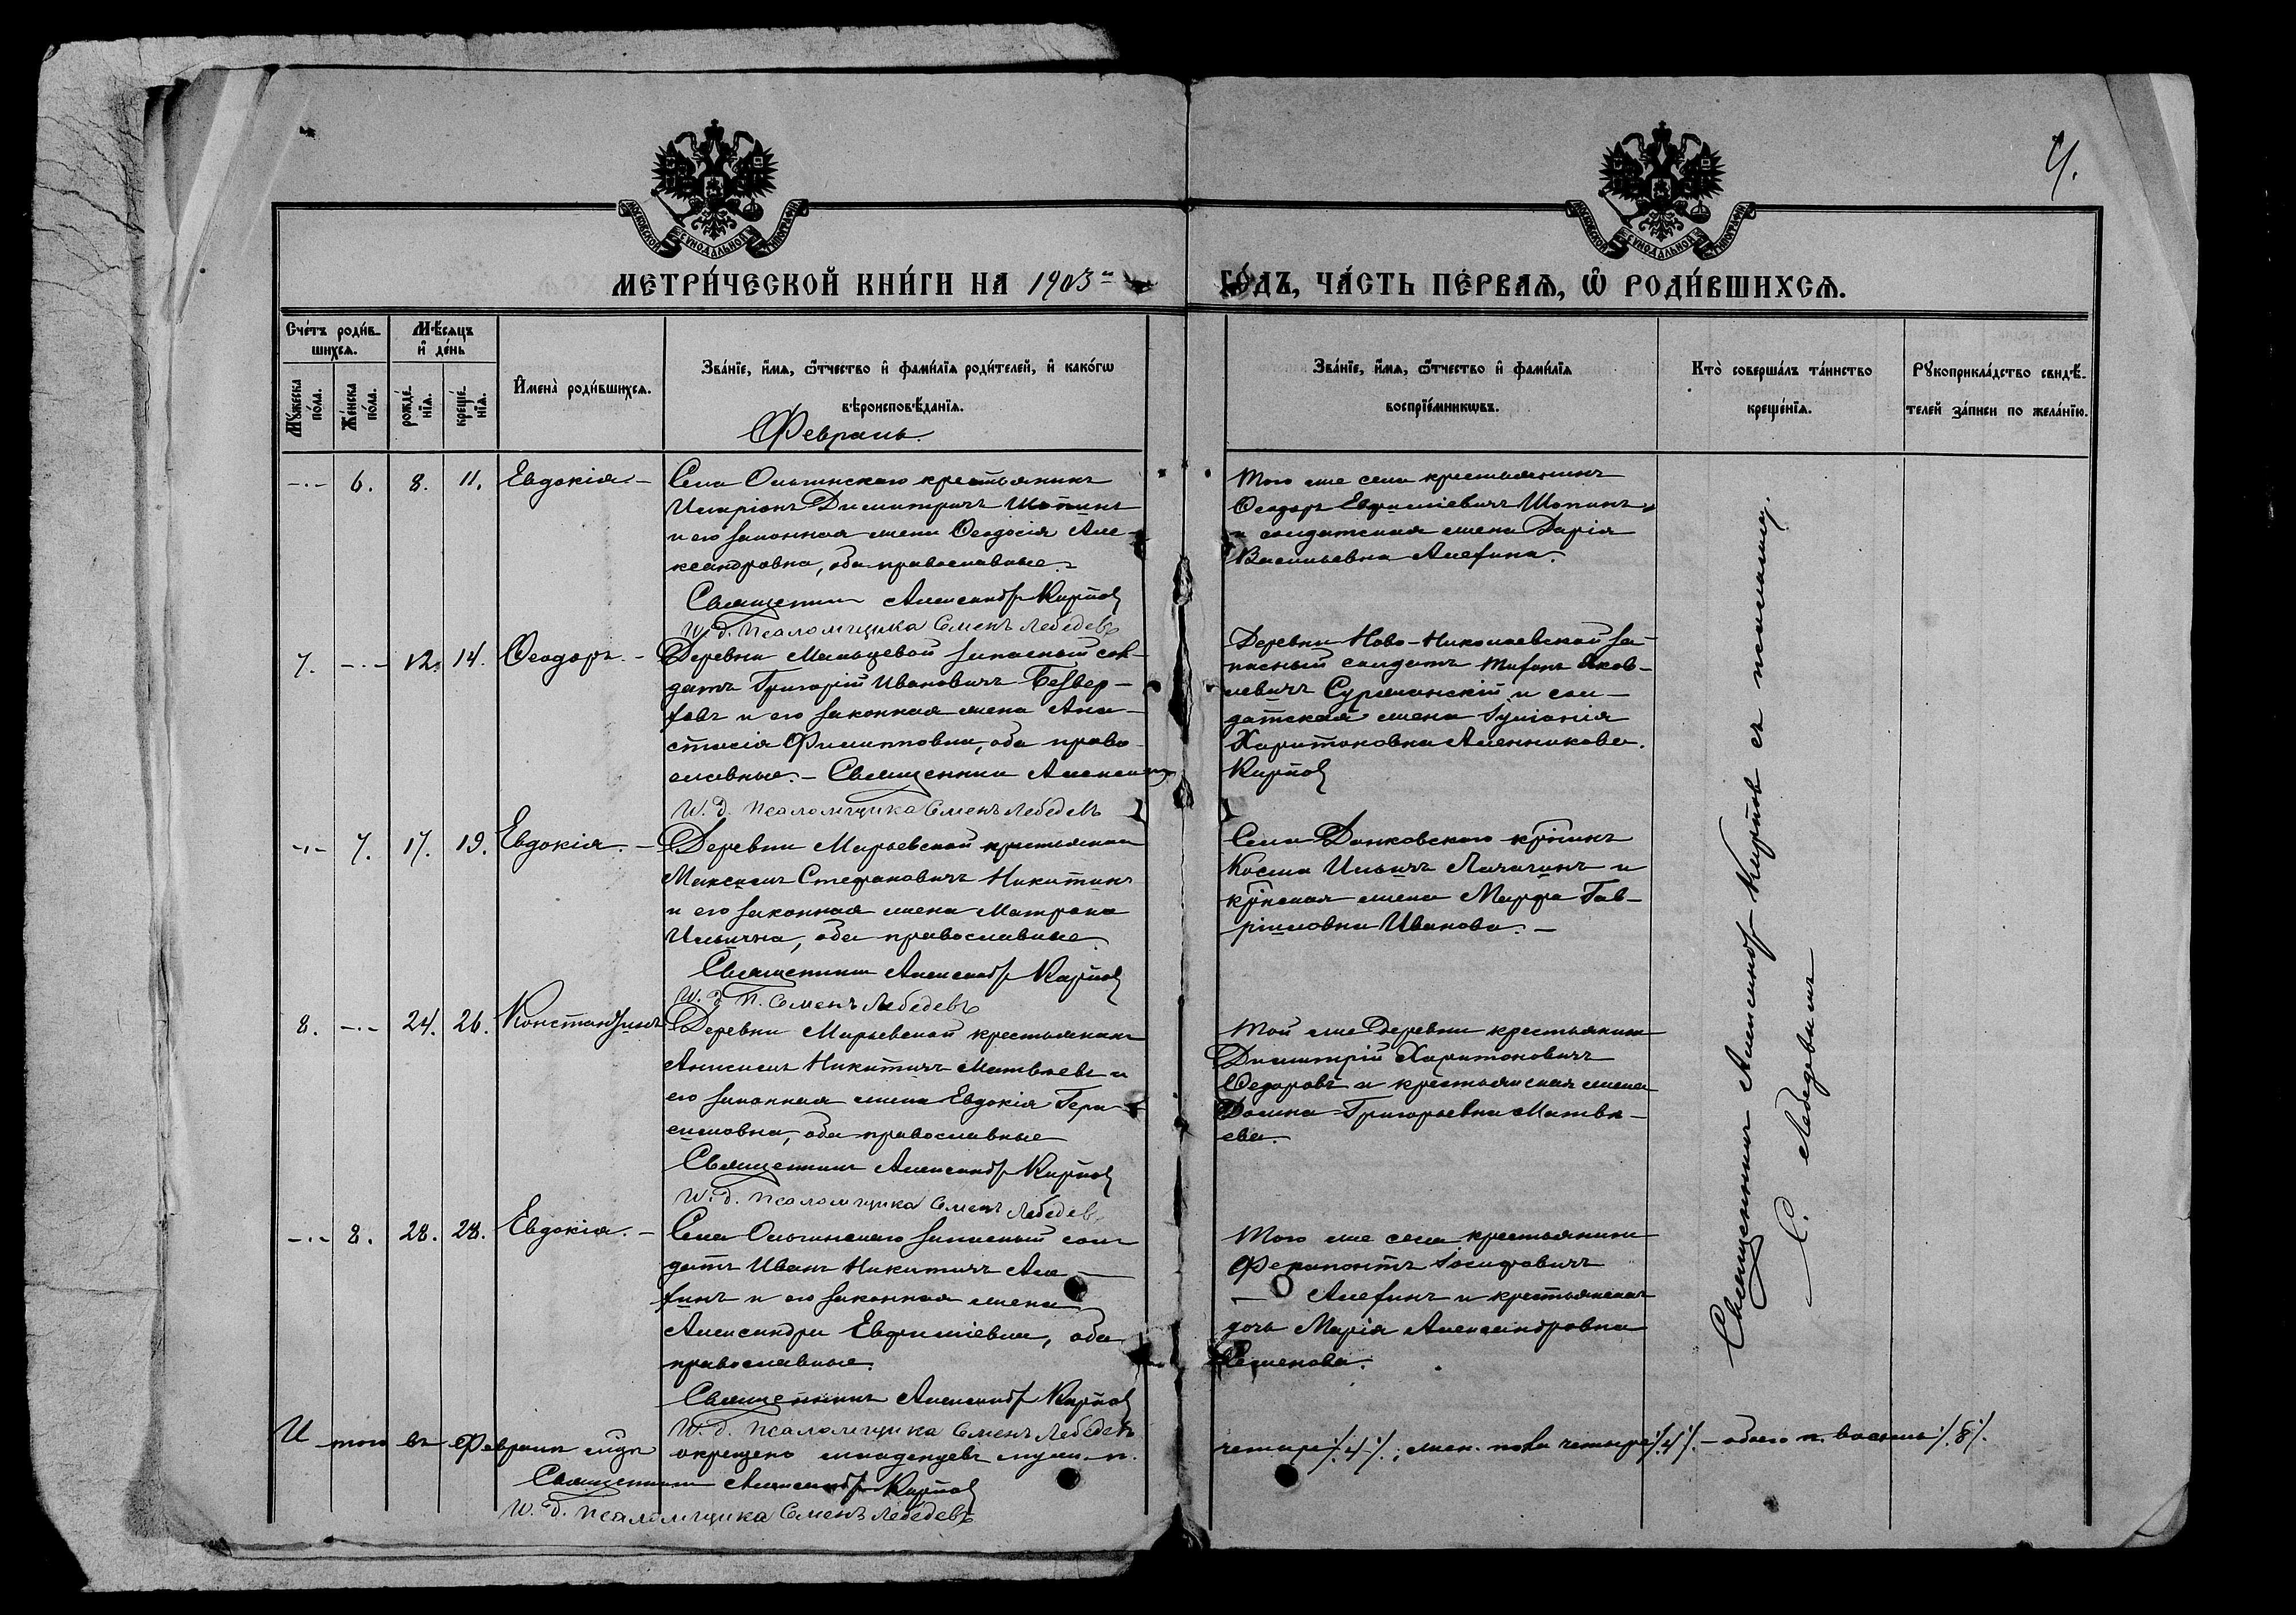 4.
МОСКОВСКОЙ СѴНОДАЛЬНОЙ ТИПОГРАФІИ
МОСКОВСКОЙ СѴНОДАЛЬНОЙ ТИПОГРАФІИ
МЕТРИ́ЧЕСКОЙ КНИ́ГИ НА 1903 ГО́ДЪ, ЧА́СТЬ ПЕ́РВАѦ, Ѡ҆ РОДИ́ВШИХСѦ.
Сче́тъ роди́в-
шихсѧ.
Мѣ́сѧцъ
и҆ де́нь
Мꙋ́жеска
по́ла.
Же́нска
по́ла.
рожде́-
нїѧ.
креще́-
нїѧ.
И҆мена̀ роди́вшихсѧ.
Зва́нїе, и҆́мѧ, ѻ҆́тчество и҆ фами́лїѧ роди́телей, и҆ како́гѡ
вѣроисповѣ́данїѧ.
Зва́нїе, и҆́мѧ, ѻ҆́тчество и҆ фами́лїѧ
воспрїе́мникѡвъ.
Кто̀ соверша́лъ та́инство
креще́нїѧ.
Рꙋкоприкла́дство свидѣ́-
телей за́писи по жела́нїю.
Февраль.
-·- 6. 8. 11. Евдокія. -
Села Ольгинскаго крестьянинъ
Иларіонъ Димитричъ Шопинъ
и его законная жена Ѳеодосія Але-
ксандровна, оба православные.-
Священникъ Александръ Карпов
И. д. псаломщика Семенъ Лебедевъ
Того же села крестьянинъ
Ѳеодоръ Евфиміевичъ Шопинъ
и солдатская жена Дарія
Васильевна Алехина.
7. -·- 12. 14. Ѳеодоръ. -
Деревни Мальцевой запасный сол-
датъ Григорій Ивановичъ
и его законная жена Ана-
стасія Филипповна, оба право-
славные. - Священник Александръ
И. д. псаломщика Семенъ Лебедевъ
Деревни Ново-Николаевской за-
пасный солдатъ Яков-
левичъ и сол-
датская жена Іуліанія
Харитоновна
Карпов
-·- 7. 17. 19. Евдокія. -
Деревни Марьевской крестьянинъ
Максимъ Стефановичъ Никитинъ
и его законная жена Матрона
Ильична, оба православные.
Священникъ Александръ Карпов
И. д. п. Семенъ Лебедевъ
Села Донковского крнинъ
Косма Ильичъ и
крнская жена Марфа Гав-
ріиловна Иванова. -
8. -·- 24. 26. Константинъ
Деревни Марьевской крестьянинъ
Анисимъ Никитичъ Матвѣевъ и
его законная жена Евдокія Гера-
симовна, оба православные
Священникъ Александръ Карпов
И. д. псаломщика Семенъ Лебедевъ
Той же деревни крестьянинъ
Димитрій Харитоновичъ
Ѳедоровъ и крестьянская жена
Домна Григорьевна Матвѣ-
ева.
-·- 8. 28. 28. Евдокія. -
Села Ольгинскаго запасный сол-
датъ Иванъ Никитичъ Але-
хинъ и его законная жена
Александра Евфиміевна, оба
православные.
Священникъ Александръ Карпов
И. д. псаломщика Семенъ Лебедевъ
Того же села крестьянинъ
Ферапонтъ Іосифовичъ
- Алехинъ и крестьянская
дочь Марія Александровна
Семенова.
Священникъ Александръ Карповъ съ псаломщ.
С. Лебедевымъ
И того въ Февралѣ мцѣ окрещено младенцевъ муж. п. четыре ⁒ 4 ⁒, жен. пола четыре ⁒ 4 ⁒ - обоего п. восемь ⁒ 8 ⁒
Священникъ Александръ Карпов
И. д. псаломщика Семенъ Лебедевъ